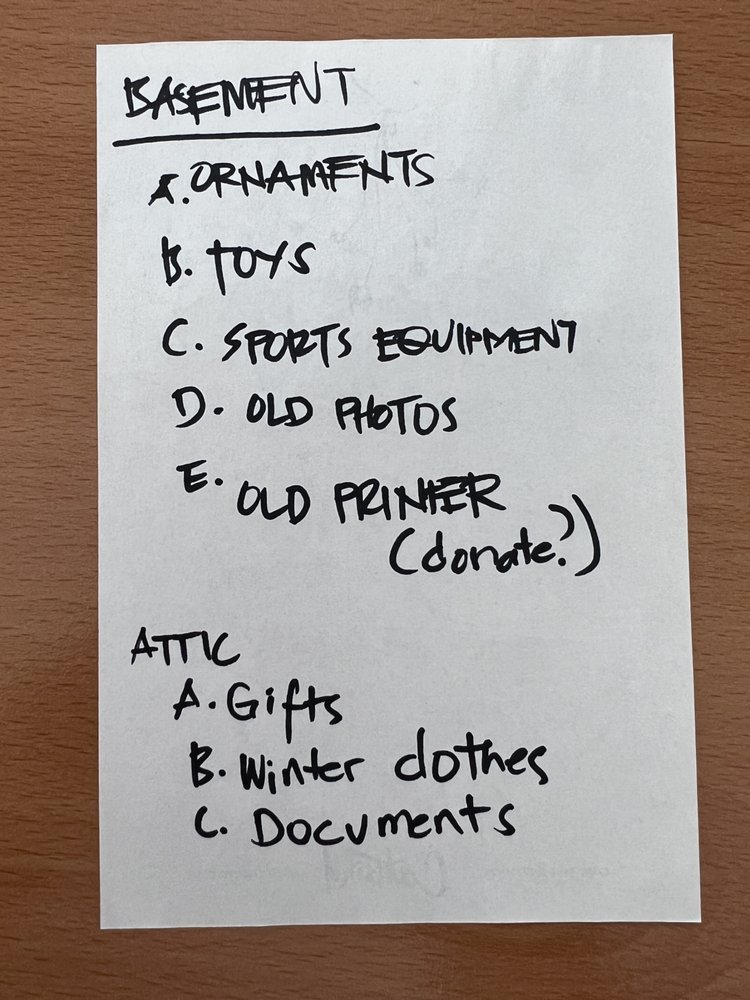 BASEMENT
A. ORNAMENTS
B. TOYS
C. SPORTS EQUIPMENT
D. OLD PHOTOS
E. OLD PRINTER
(donate?)
ATTIC
A. Gifts
B. Winter clothes
C. Documents